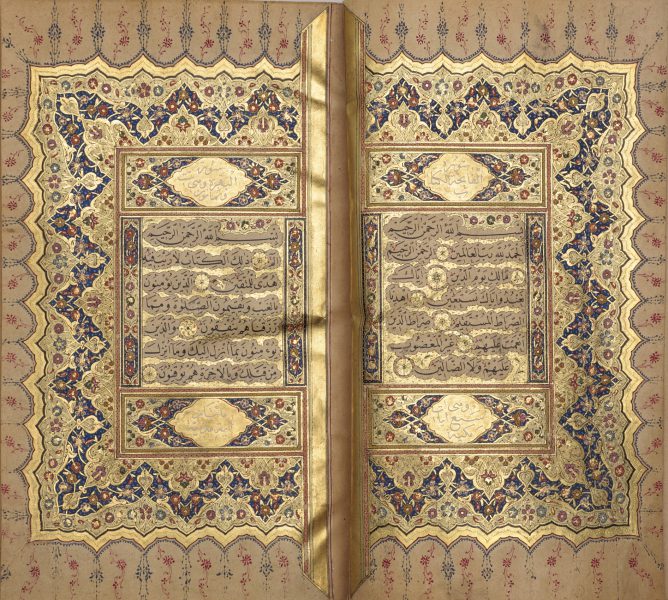 بسم الله الرحمن الرحيم
الحمد لله رب العالمين الرحمن الرحيم
مالك يوم الدين اياك
نعبد واياك نستعين اهدنا
الصراط المستقيم صراط الذين
انعمت عليهم غير المغضوب
عليهم ولا الضالين
سورة
البقرة
بسم الله الرحمن الرحيم
الم ذلك الكتاب لا ريب فيه
هدى للمتقين الذين يؤمنون
بالغيب ويقيمون الصلوة ومما
رزقناهم ينفقون والذين
يؤمنون بما انزل اليك وما انزل
من قبلك وبالاخرة هم يوقنون